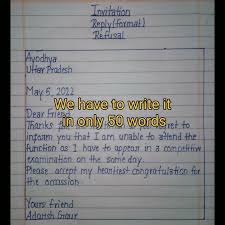 Invitation
Reply (format)
Refusal
Ayodhya
Uttar Pradesh
May 5, 2022
We have to write it
in only 50 words
Dear friend
Thanks for regret to
inform you that I am unable to attend the
function as I have to appear in a competitive
examination on the same day.
Please accept my heartiest congratulation for
the occassion
Yours friend
Adarsh Gour